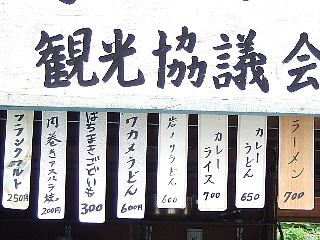 観光協議会
ラーメン
700
カレー
うどん
650
カレー
ライス
700
岩ノリうどん
600
ワカメうどん
600円
はちまきごどいも
300
肉巻きアスパラ焼
200円
フランクフルト
250円